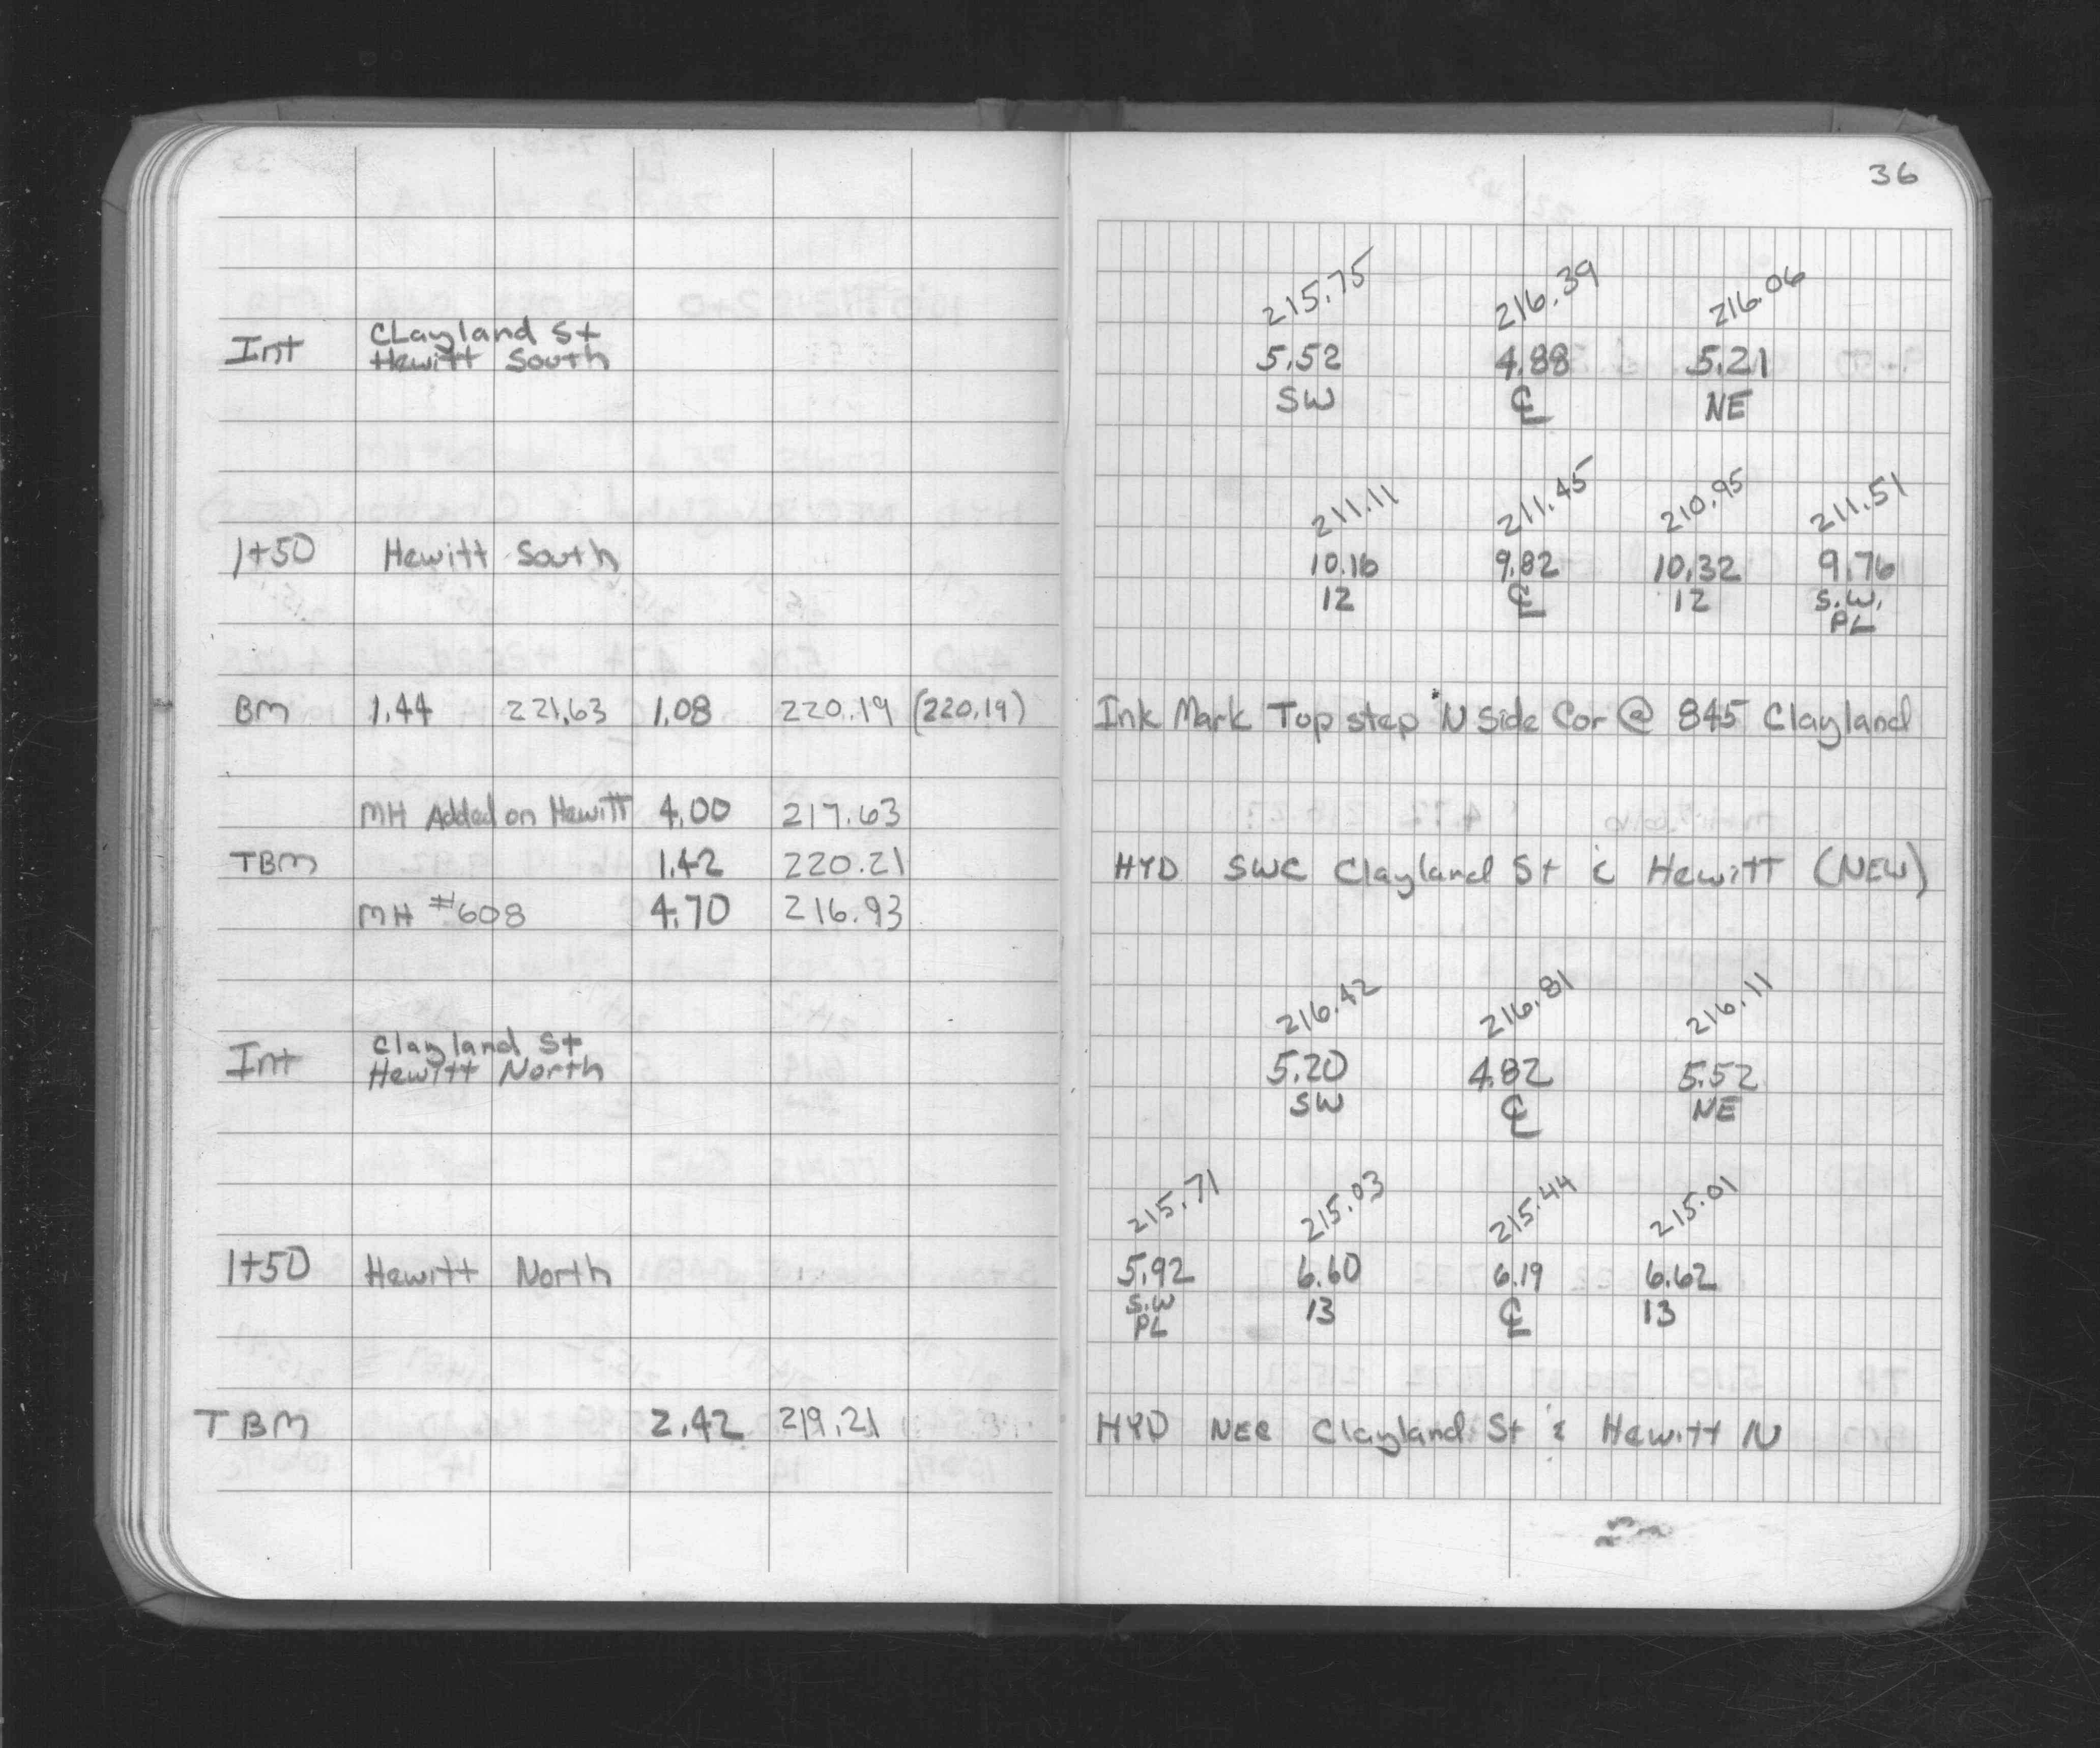 36
215.75 216.39 216.06
Int CLayland St
Hewitt South 5.52 4.88 5.21
SW ℄ NE
211.11 211.45 210.95 211.51
1+50 Hewitt South 10.16 9.82 10.32 9.76
12 ℄ 12 S.W.
PL
BM 1.44 221.63 1.08 220.19 (220.19) Ink Mark Top step N Side Cor @ 845 Clayland
MH Added on Hewitt 4.00 217.63
TBM 1.42 220.21 HYD SWC Clayland St & Hewitt (NEW)
MH #608 4.70 216.93
216.42 216.81 216.11
Int Clayland St
Hewitt North 5.20 4.82 5.52
SW ℄ NE
215.71 215.03 215.44 215.01
1+50 Hewitt North 5.92 6.60 6.19 6.62
S.W 13 ℄ 13
PL
TBM 2.42 219.21 HYD NEC Clayland St & Hewitt N